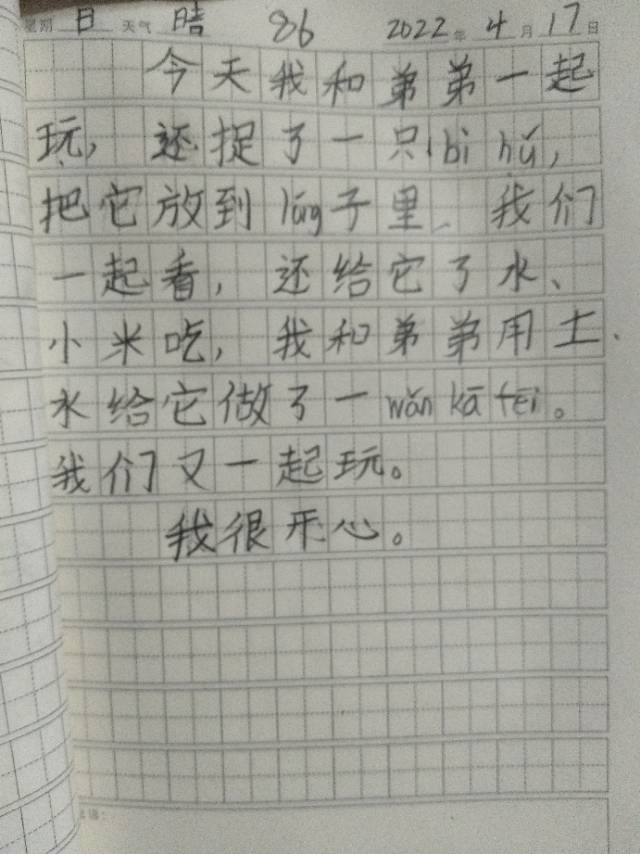 星期 日 天气 晴 86 2022年 4月 17日
今天我和弟弟一起
玩，还捉了一只bì hǔ，
把它放到lóng子里、我们
一起看，还给它了水、
小米吃，我和弟弟用土、
水给它做了一wǎn kā fēi。
我们又一起玩。
我很开心。